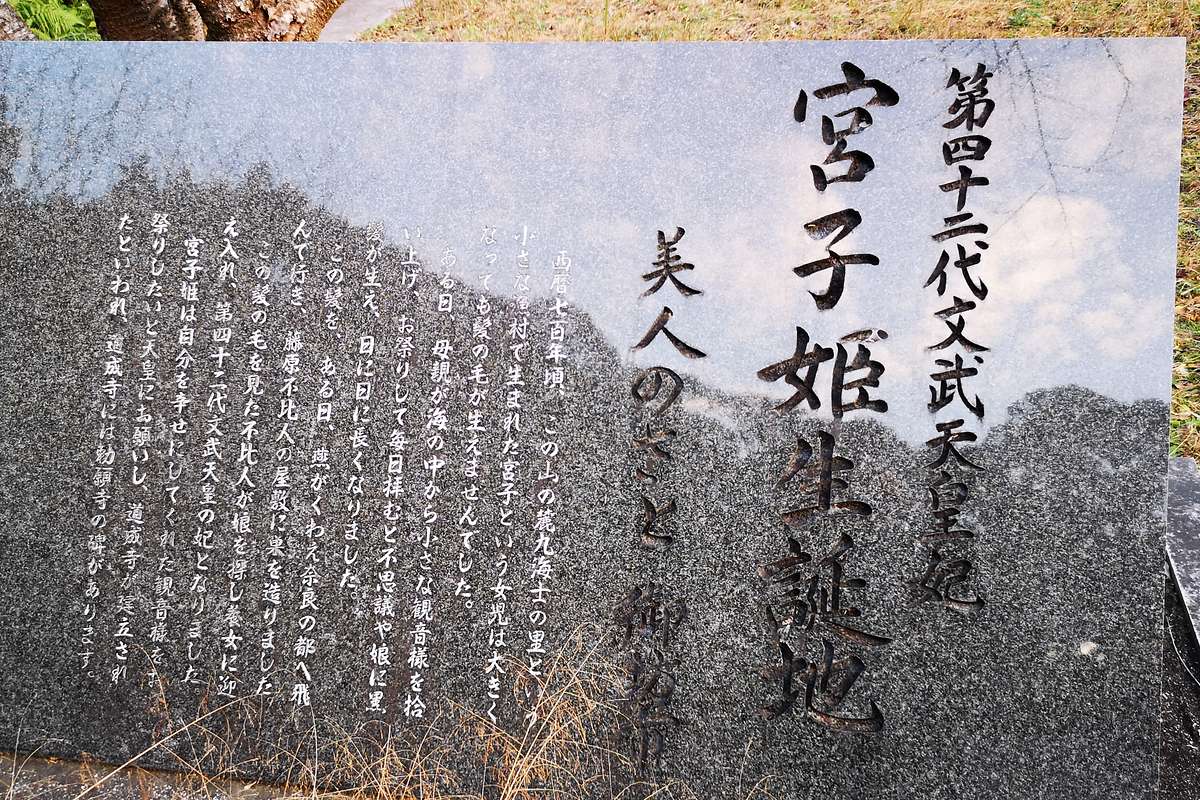 第四十二代文武天皇妃
宮子姫生誕地
美人のさと 御坊市
西暦七百年頃、この山の麓九海士の里という
小さな漁村で生まれた宮子という女児は大きく
なっても髪の毛が生えませんでした。
ある日、母親が海の中から小さな観音様を拾
い上げ、お祭りして毎日拝むと不思議や娘に黒
髪が生え、日に日に長くなりました。
この髪を、ある日、燕がくわえ奈良の都へ飛
んで行き、藤原不比人の屋敷に巣を造りました
この髪の毛を見た不比人が娘を探し養女に迎
え入れ、第四十二代文武天皇の妃となりました
宮子姫は自分を幸せにしてくれた観音様をお
祭りしたいと天皇にお願いし、道成寺が建立され
たといわれ、道成寺には勅願寺の碑があります。